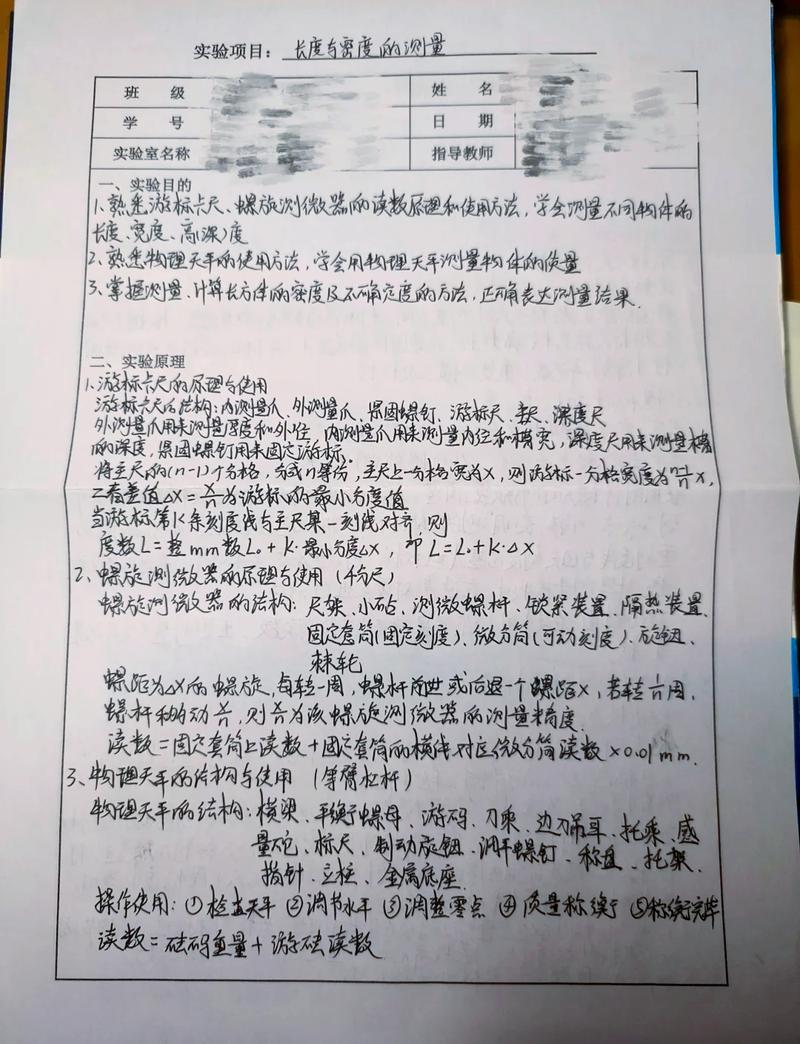 实验项目: 长度与密度的测量
班 级 姓 名
学 号 日 期
实验室名称 指导教师
一、实验目的
1、熟悉游标卡尺、螺旋测微器的读数原理和使用方法,学会测量不同物体的
长度、宽度、高(深)度
2、熟悉物理天平的使用方法,学会用物理天平测量物体的质量
3、掌握测量、计算长方体的密度及不确定度的方法,正确表达测量结果.
二、实验原理
1、游标卡尺的原理与使用
游标卡尺的结构:内测量爪、外测量爪、紧固螺钉、游标尺、主尺、深度尺
外测量爪用来测量厚度和外径,内测量爪用来测量内径和槽宽,深度尺用来测量槽
的深度,紧固螺钉用来固定游标.
将主尺的(n-1)个分格,分成n等份,主尺上一分格宽为x,则游标一分格宽度为(n-1)/n x,
二者差值Δx=x/n为游标的最小分度值
当游标第K条刻度线与主尺某一刻线对齐,则
度数L=整mm数L₀+K·最小分度Δx,即L=L₀+K·Δx
2、螺旋测微器的原理与使用(千分尺)
螺旋测微器的结构:尺架、小砧、测微螺杆、锁紧装置、隔热装置、
固定套筒(固定刻度)、微分筒(可动刻度)、旋钮、
棘轮
螺距为Δx的螺旋,每转一周,螺杆前进或后退一个螺距x,若转1/n周,
螺杆移动x/n,则x/n为该螺旋测微器的测量精度.
读数=固定套筒上读数+固定套筒的横线对应微分筒读数×0.01mm.
3、物理天平的结构与使用(等臂杠杆)
物理天平的结构:横梁、平衡螺母、游码、刀承、边刀吊耳、托承、感
量砣、标尺、制动旋钮、调平螺钉、称盘、托架、
指针、立柱、金属底座.
操作使用:①检查天平 ②调节水平 ③调整零点 ④质量称衡 ⑤称衡完毕
读数=砝码重量+游砝读数